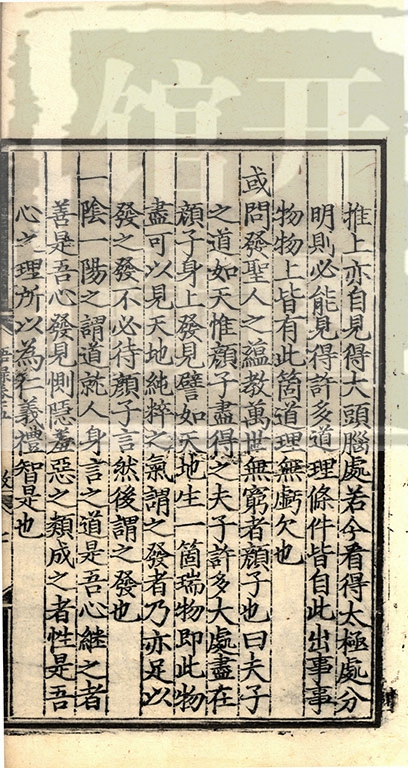 推上亦自見得大頭腦處若今看得太極處分
明則必能見得許多道理條件皆自此出事事
物物上皆有此箇道理無虧欠也
或問發聖人之蘊教萬世無窮者顏子也曰夫子
之道如天惟顏子盡得之夫子許多大處盡在
顏子身上發見譬如天地生一箇瑞物即此物
盡可以見天地純粹之氣謂之發者乃亦足以
發之發不必待顏子言然後謂之發也
一陰一陽之謂道就人身言之道是吾心繼之者
善是吾心發見惻隱羞惡之類成之者性是吾
心之理所以為仁義禮智是也